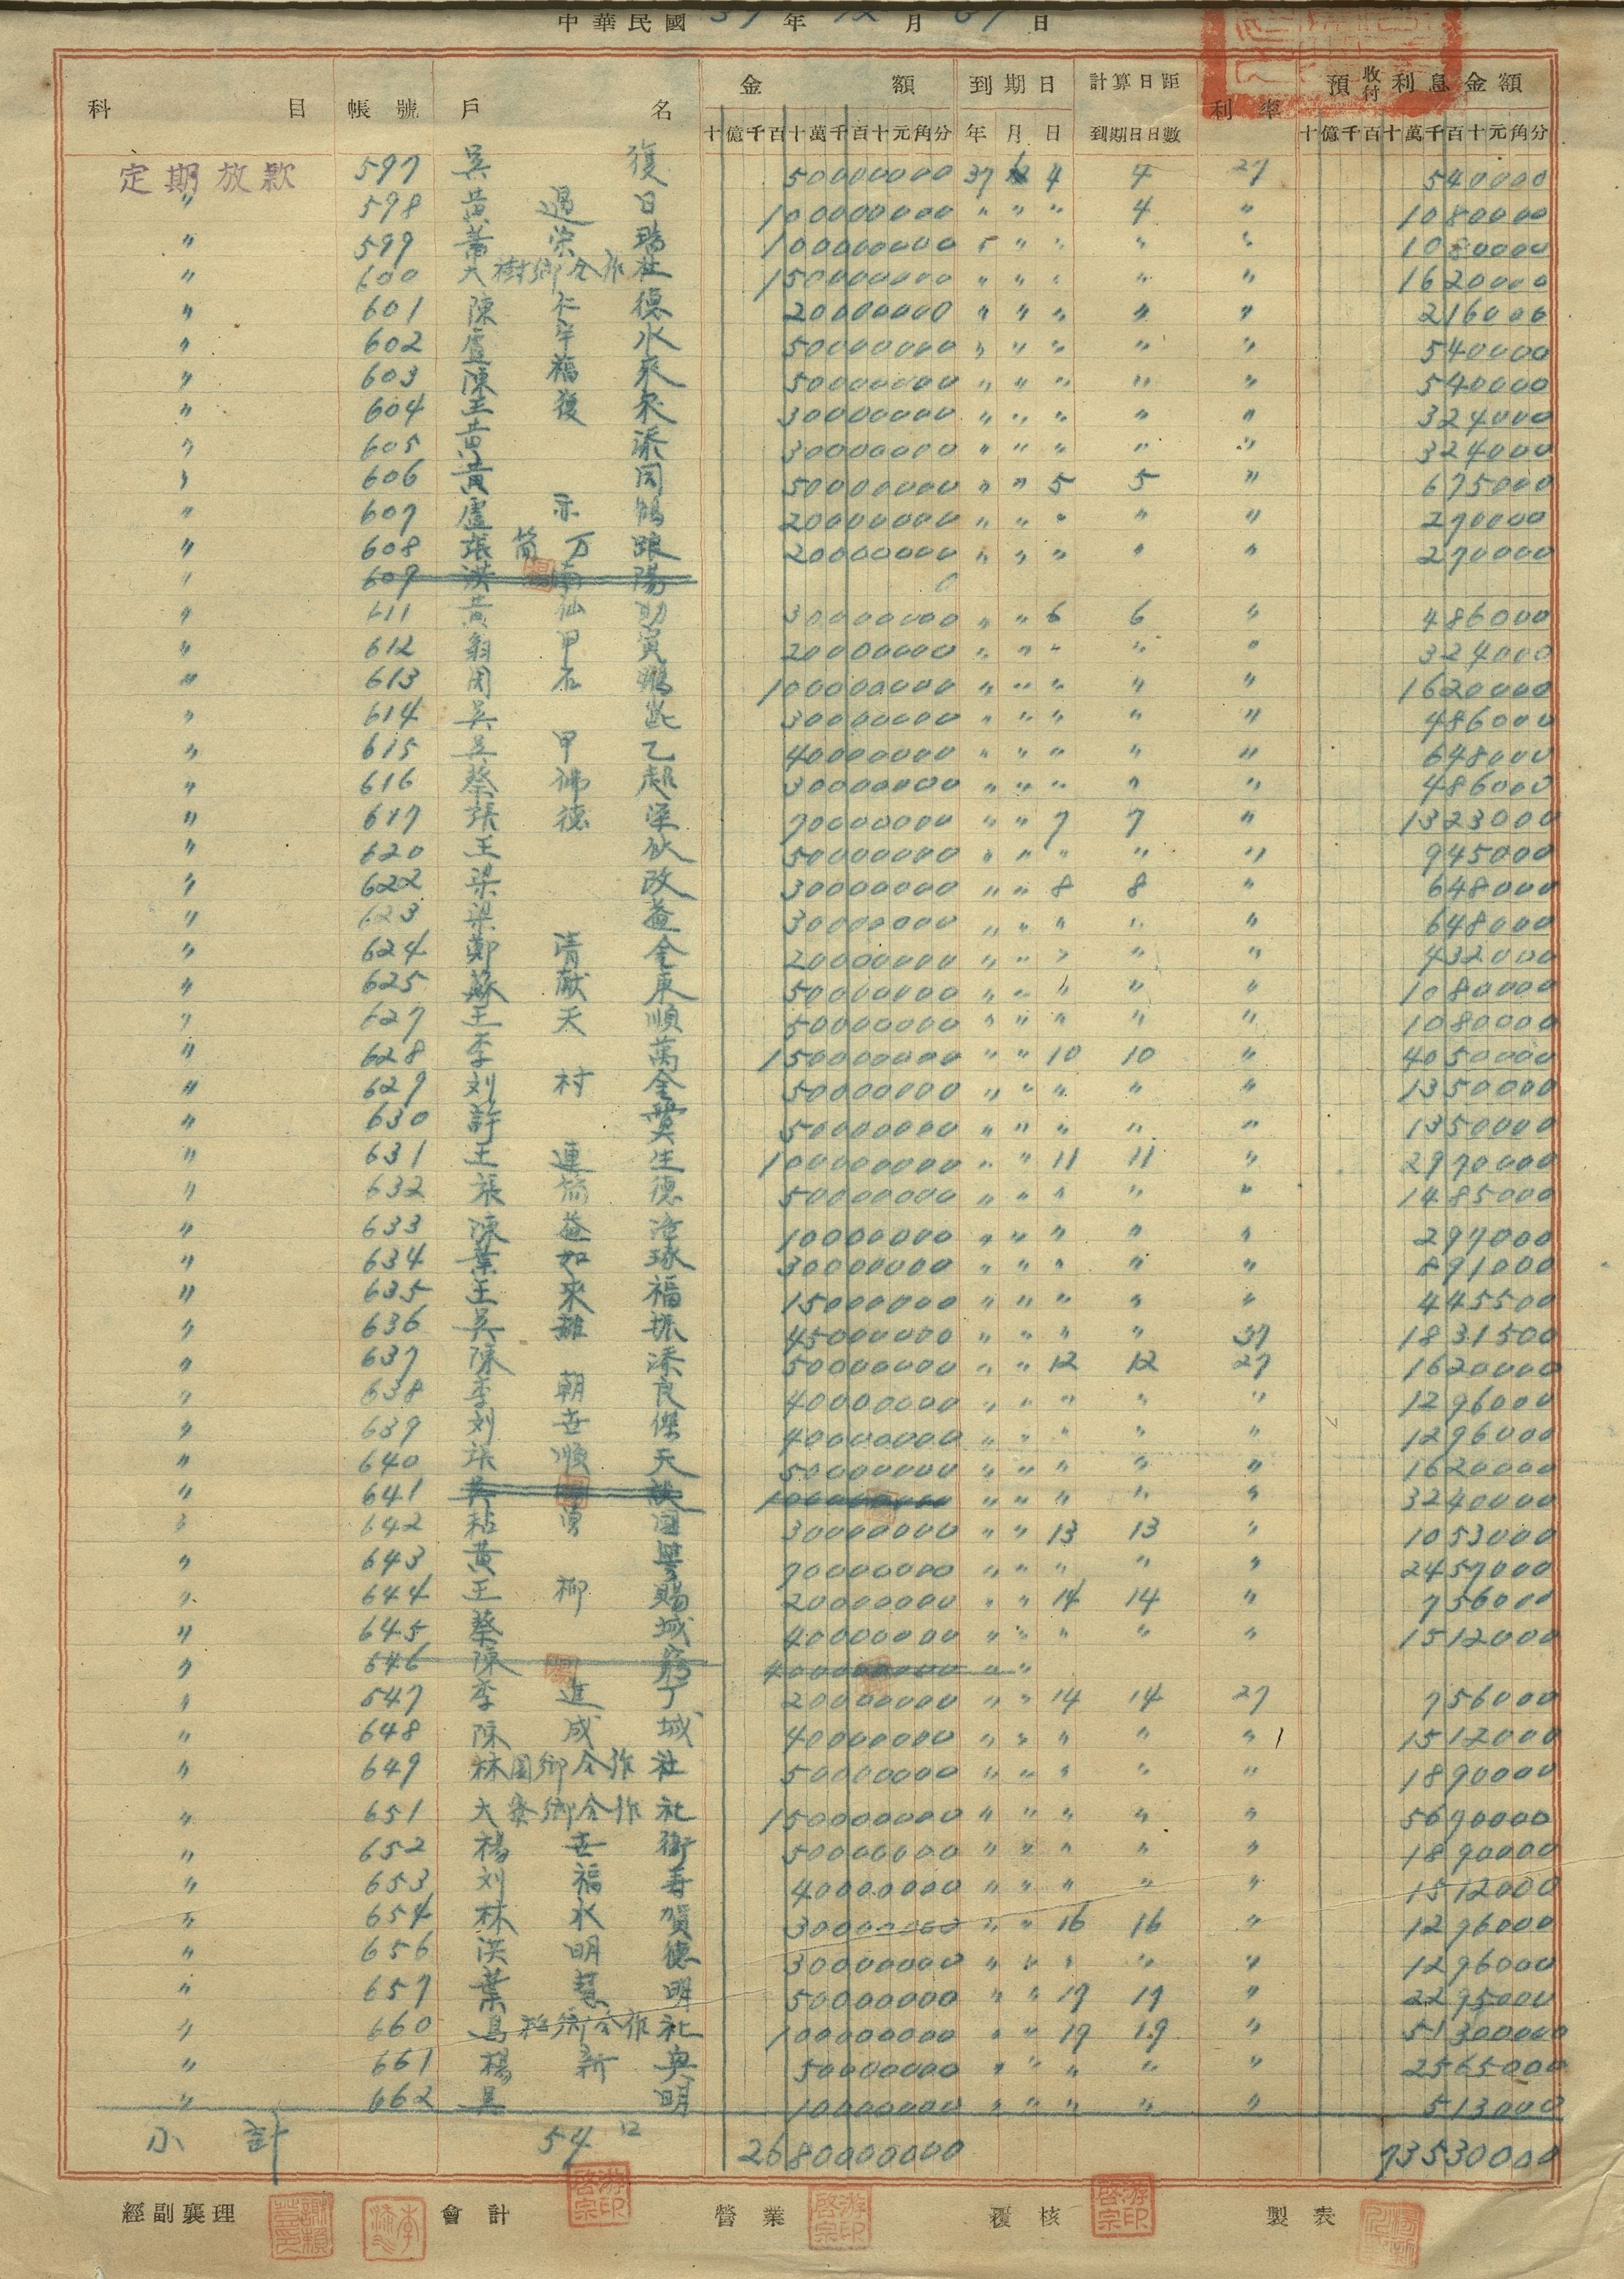 中華民國 37 年 12 月 31 日
科 目 帳號 戶 名 金 額 到期日 計算日距到期日日數 利率 預收付利息金額
十億千百十萬千百十元角分 年 月 日 十億千百十萬千百十元角分
定期放款 597 吳 復 50000000 37 12 4 4 27 540000
〃 598 黃 過 日 100000000 〃 〃 〃 4 〃 1080000
〃 599 萬 榮 瑞 100000000 〃 〃 〃 〃 〃 1080000
〃 600 大樹鄉合作社 150000000 〃 〃 〃 〃 〃 1620000
〃 601 陳 仁 德 20000000 〃 〃 〃 〃 〃 216000
〃 602 盧 辛 水 50000000 〃 〃 〃 〃 〃 540000
〃 603 陳 福 來 50000000 〃 〃 〃 〃 〃 540000
〃 604 王 復 來 30000000 〃 〃 〃 〃 〃 324000
〃 605 黃 添 30000000 〃 〃 〃 〃 〃 324000
〃 606 黃 同 50000000 〃 〃 5 5 〃 675000
〃 607 盧 示 鴻 20000000 〃 〃 〃 〃 〃 270000
〃 608 張 簡 万 20000000 〃 〃 〃 〃 〃 270000
〃 609 洪 南 陽 0
〃 611 黃 仙 助 30000000 〃 〃 6 6 〃 486000
〃 612 翁 甲 寅 20000000 〃 〃 〃 〃 〃 324000
〃 613 周 石 鵬 100000000 〃 〃 〃 〃 〃 1620000
〃 614 吳 30000000 〃 〃 〃 〃 〃 486000
〃 615 吳 甲 乙 40000000 〃 〃 〃 〃 〃 648000
〃 616 蔡 佛 超 30000000 〃 〃 〃 〃 〃 486000
〃 617 張 德 深 70000000 〃 〃 7 7 〃 1323000
〃 620 王 欽 50000000 〃 〃 〃 〃 〃 945000
〃 622 梁 改 30000000 〃 〃 8 8 〃 648000
〃 623 梁 益 30000000 〃 〃 〃 〃 〃 648000
〃 624 鄭 清 全 20000000 〃 〃 〃 〃 〃 432000
〃 625 蘇 献 東 50000000 〃 〃 〃 〃 〃 1080000
〃 627 王 天 順 50000000 〃 〃 〃 〃 〃 1080000
〃 628 李 萬 150000000 〃 〃 10 10 〃 4050000
〃 629 刘 村 全 50000000 〃 〃 〃 〃 〃 1350000
〃 630 許 50000000 〃 〃 〃 〃 〃 1350000
〃 631 王 連 生 100000000 〃 〃 11 11 〃 2970000
〃 632 張 德 50000000 〃 〃 〃 〃 〃 1485000
〃 633 陳 益 10000000 〃 〃 〃 〃 〃 297000
〃 634 葉 如 琢 30000000 〃 〃 〃 〃 〃 891000
〃 635 王 來 福 15000000 〃 〃 〃 〃 〃 445500
〃 636 吳 雛 振 45000000 〃 〃 〃 〃 37 1831500
〃 637 陳 添 50000000 〃 〃 12 12 27 1620000
〃 638 李 朝 良 40000000 〃 〃 〃 〃 〃 1296000
〃 639 刘 世 傑 40000000 〃 〃 〃 〃 〃 1296000
〃 640 張 順 天 50000000 〃 〃 〃 〃 〃 1620000
〃 641 吳 100000000 〃 〃 〃 〃 〃 3240000
〃 642 粘 勇 30000000 〃 〃 13 13 〃 1053000
〃 643 黃 70000000 〃 〃 〃 〃 〃 2457000
〃 644 王 柳 賜 20000000 〃 〃 14 14 〃 756000
〃 645 蔡 城 40000000 〃 〃 〃 〃 〃 1512000
〃 646 陳 400000000 〃 〃
〃 647 李 進 丁 20000000 〃 〃 14 14 27 756000
〃 648 陳 成 城 40000000 〃 〃 〃 〃 〃 1512000
〃 649 林園鄉合作社 50000000 〃 〃 〃 〃 〃 1890000
〃 651 大寮鄉合作社 150000000 〃 〃 〃 〃 〃 5670000
〃 652 楊 世 衡 50000000 〃 〃 〃 〃 〃 1890000
〃 653 刘 福 壽 40000000 〃 〃 〃 〃 〃 1512000
〃 654 林 水 賀 30000000 〃 〃 16 16 〃 1296000
〃 656 洪 明 德 30000000 〃 〃 〃 〃 〃 1296000
〃 657 葉 慧 明 50000000 〃 〃 17 17 〃 2295000
〃 660 鳥松鄉合作社 100000000 〃 〃 19 19 〃 51300000
〃 661 楊 新 與 50000000 〃 〃 〃 〃 〃 2565000
〃 662 吳 明 10000000 〃 〃 〃 〃 〃 513000
小計 54口 2680000000 73530000
經副襄理 會計 游啓宗印 營業 游啓宗印 覆核 游啓宗印 製表